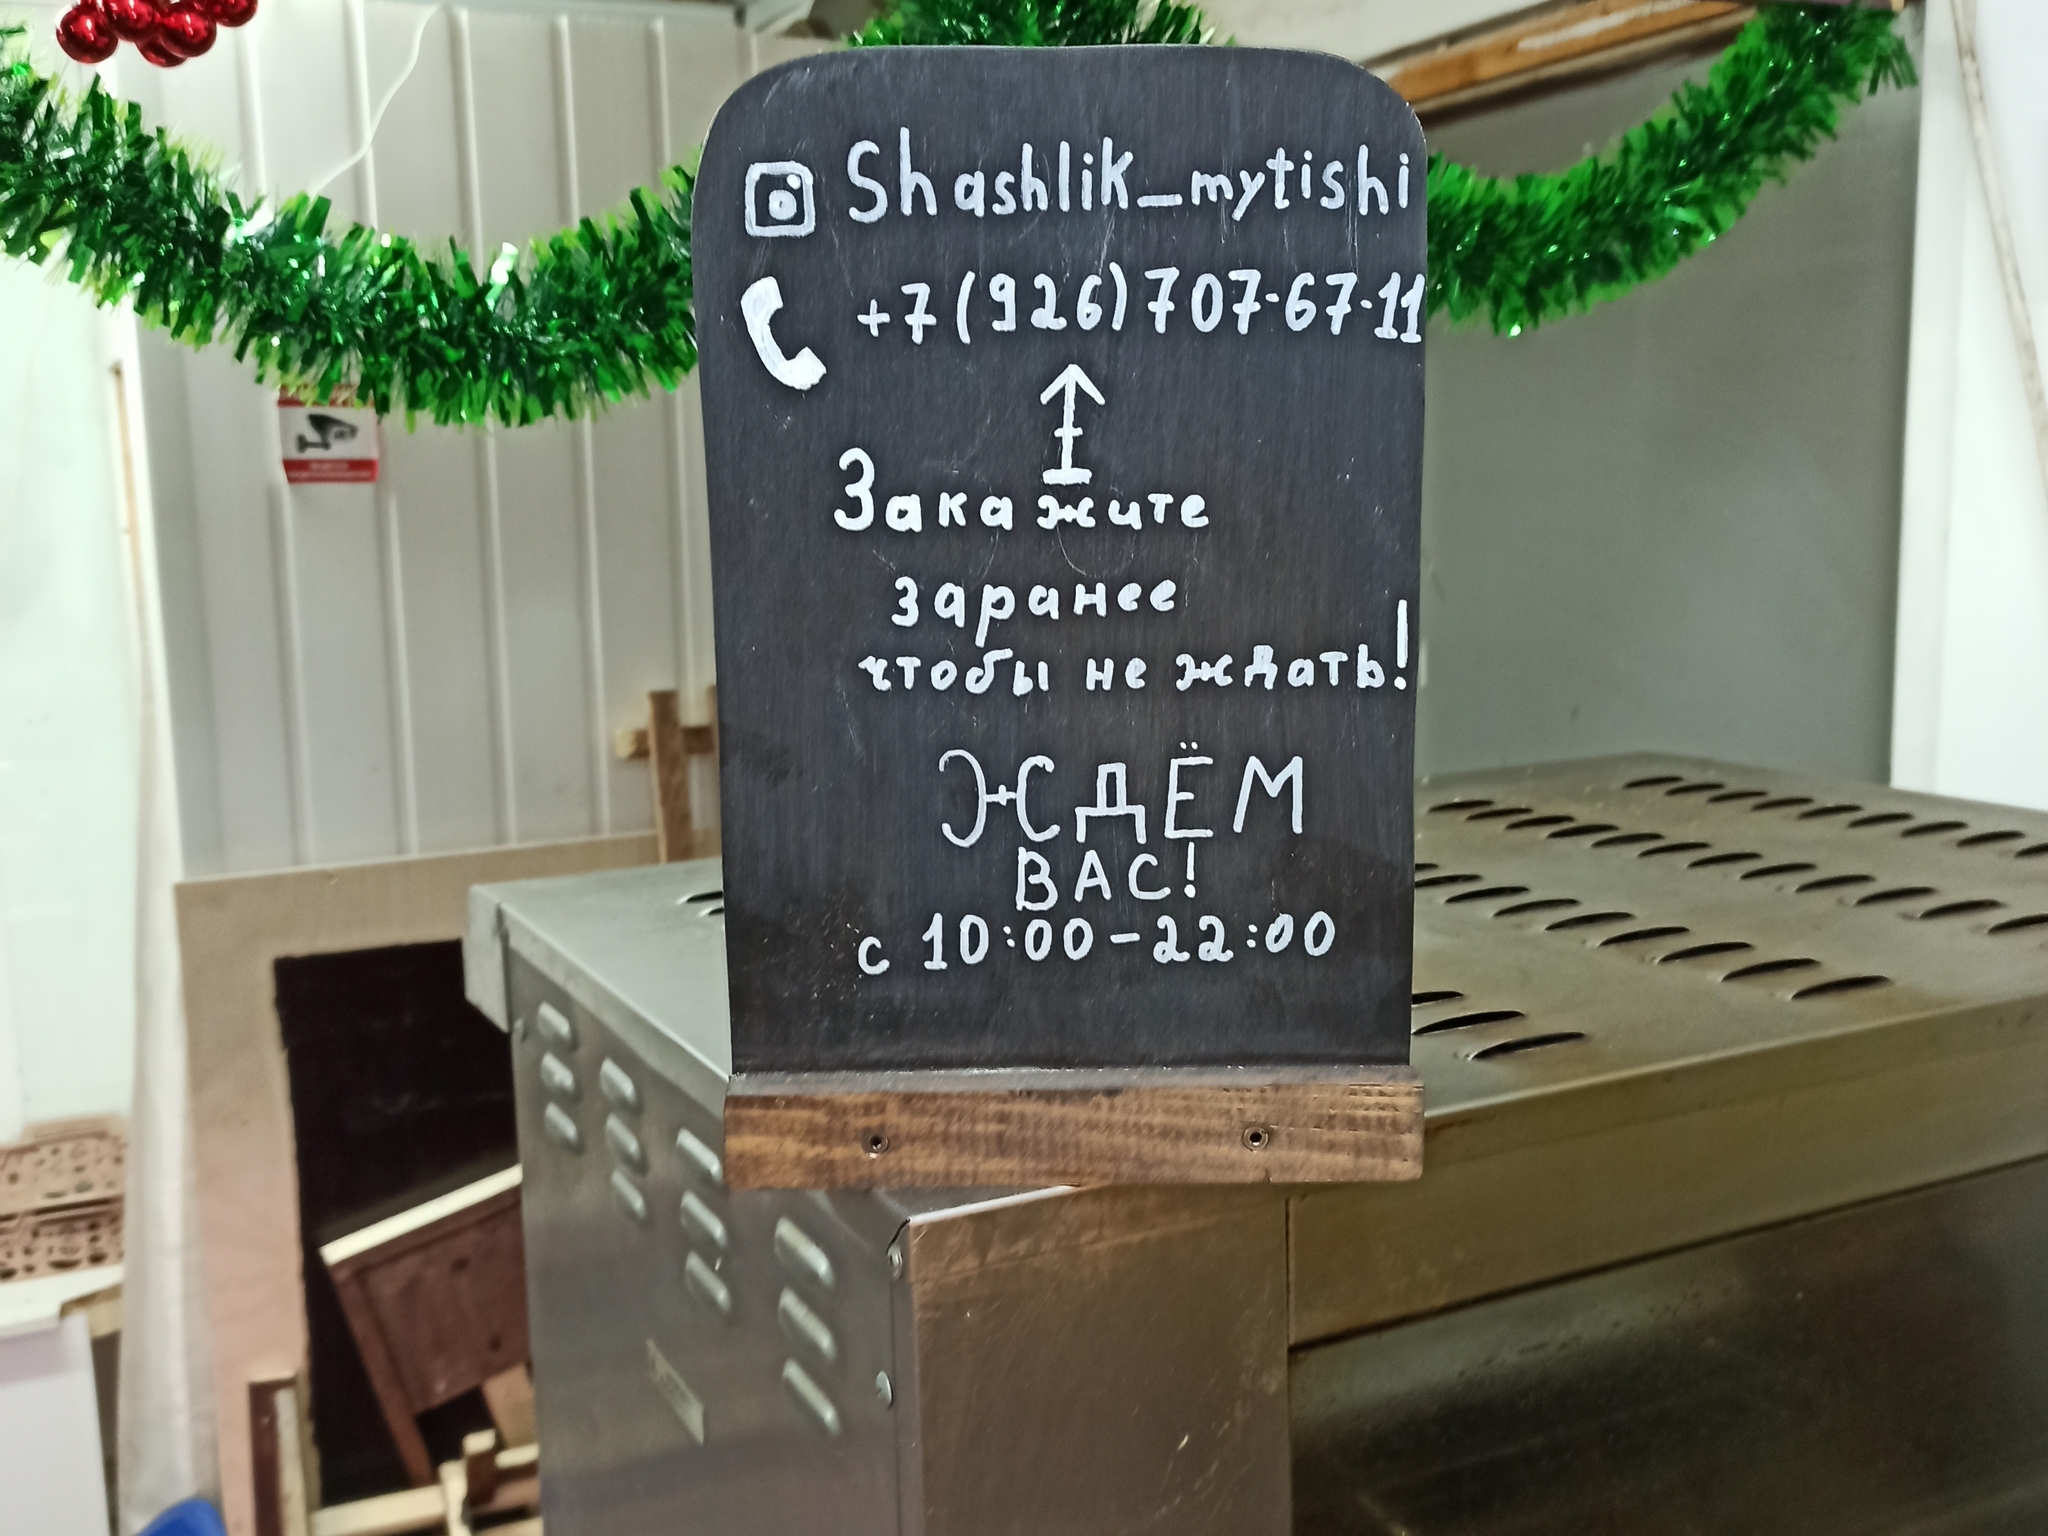 Shashlik_mytishi
+7(926)707-67-11
Закажите
заранее
чтобы не ждать!
ЖДЁМ
ВАС!
с 10:00-22:00